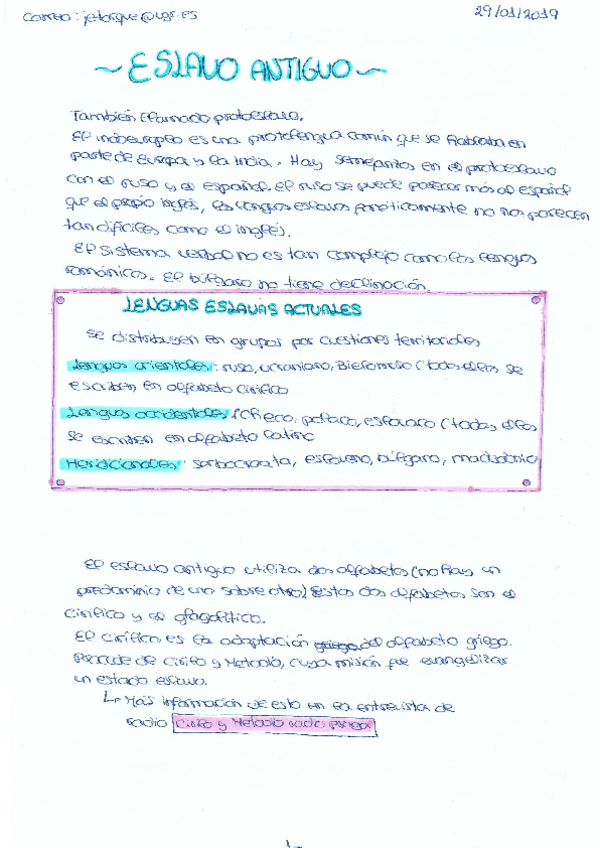 Correo: jetorque@ugr.es 29/01/2019
~ESLAVO ANTIGUO~
También llamado protoeslavo.
El indoeuropeo es una protolengua común que se hablaba en
parte de Europa y la India. Hay semejanzas en el protoeslavo
con el ruso y el español. El ruso se puede parecer más al español
que el propio inglés, las lenguas eslavas fonéticamente no nos parecen
tan difíciles como el inglés.
El sistema verbal no es tan complejo como las lenguas
románicas. El búlgaro no tiene declinación.
LENGUAS ESLAVAS ACTUALES
Se distribuyen en grupos por cuestiones territoriales
Lenguas orientales: ruso, ucraniano, bielorruso (todos ellos se
escriben en alfabeto cirílico
Lenguas occidentales: (checo, polaco, eslovaco (todas ellas
se escriben en alfabeto latino
Meridionales: serbocroata, esloveno, búlgaro, macedonio
El eslavo antiguo utiliza dos alfabetos (no hay un
predominio de uno sobre otro) Estos dos alfabetos son el
cirílico y el glagolítico.
El cirílico, es la adaptación griega del alfabeto griego.
Procede de Cirilo y Metodio, cuya misión fue evangelizar
un estado eslavo.
↳ Más información de esto en la entrevista de
radio Cirilo y Metodio radio
1-